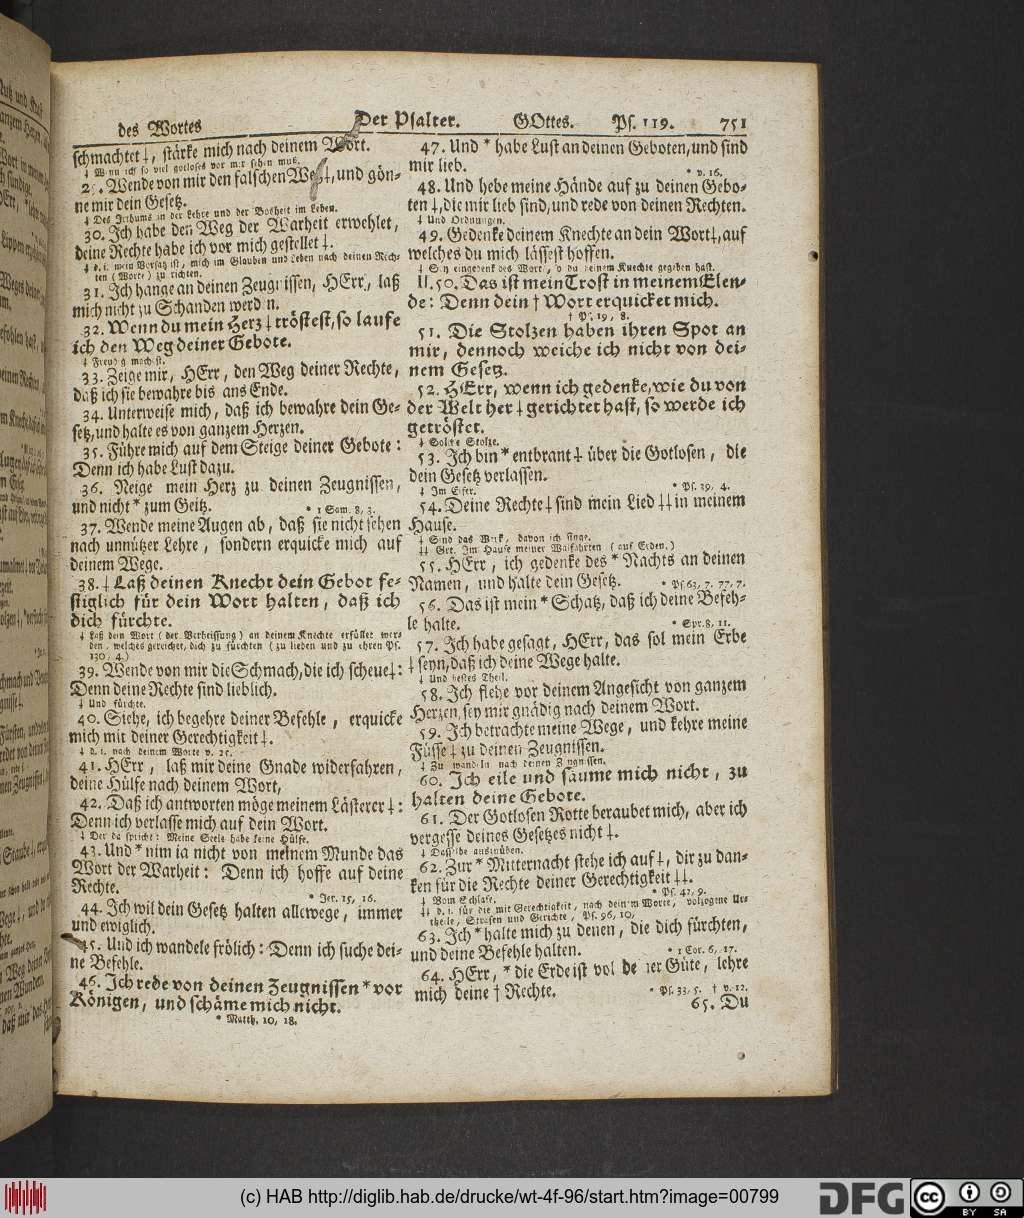 des Wortes Der Psalter. GOttes. Ps. 119. 751
schmachtet ⸸, stärke mich nach deinem Wort.
⸸ Wenn ich so viel gotloses vor mir sehen muß.
Wende von mir den falschen ⸸, und gön-
ne mir dein Gesetz.
⸸ Des Irthums in der Lehre und der Bosheit im Leben.
30. Ich habe den Weg der Warheit erwehlet,
deine Rechte habe ich vor mich gestellet ⸸.
⸸ d. i. mein Vorsatz ist, mich im Glauben und Leben nach deinen Rech-
ten (Worte) zu richten.
31. Ich hange an deinen Zeugnissen, HErr, laß
mich nicht zu Schanden werden.
32. Wenn du mein Herz ⸸ tröstest, so laufe
ich den Weg deiner Gebote.
⸸ Freudig machst.
33. Zeige mir, HErr, den Weg deiner Rechte,
daß ich sie bewahre bis ans Ende.
34. Unterweise mich, daß ich bewahre dein Ge-
setz, und halte es von ganzem Herzen.
35. Führe mich auf dem Steige deiner Gebote:
Denn ich habe Lust dazu.
36. Neige mein Herz zu deinen Zeugnissen,
und nicht * zum Geitz. * 1 Sam. 8, 3.
37. Wende meine Augen ab, daß sie nicht sehen
nach unnützer Lehre, sondern erquicke mich auf
deinem Wege.
38. ⸸ Laß deinen Knecht dein Gebot fe-
stiglich für dein Wort halten, daß ich
dich fürchte.
⸸ Laß dein Wort (der Verheissung) an deinem Knechte erfüllet wer-
den, welches gereichet, dich zu fürchten (zu lieben und zu ehren Ps.
130, 4.)
39. Wende von mir die Schmach, die ich scheue ⸸:
Denn deine Rechte sind lieblich.
⸸ Und fürchte.
40. Siehe, ich begehre deiner Befehle, erquicke
mich mit deiner Gerechtigkeit ⸸.
⸸ d. i. nach deinem Worte v. 25.
41. HErr, laß mir deine Gnade widerfahren,
deine Hülfe nach deinem Wort,
42. Daß ich antworten möge meinem Lästerer ⸸:
Denn ich verlasse mich auf dein Wort.
⸸ Der da spricht: Meine Seele habe keine Hülfe.
43. Und * nim ja nicht von meinem Munde das
Wort der Warheit: Denn ich hoffe auf deine
Rechte. * Jer. 15, 16.
44. Ich wil dein Gesetz halten allewege, immer
und ewiglich.
45. Und ich wandele frölich: Denn ich suche dei-
ne Befehle.
46. Ich rede von deinen Zeugnissen * vor
Königen, und schäme mich nicht.
* Matth. 10, 18.
47. Und * habe Lust an deinen Geboten, und sind
mir lieb. * v. 16.
48. Und hebe meine Hände auf zu deinen Gebo-
ten ⸸, die mir lieb sind, und rede von deinen Rechten.
⸸ Und Ordnungen.
49. Gedenke deinem Knechte an dein Wort ⸸, auf
welches du mich lässest hoffen.
⸸ Sey eingedenk des Worts, so du deinem Knechte gegeben hast.
II. 50. Das ist mein Trost in meinem Elen-
de: Denn dein † Wort erquicket mich.
† Ps. 19, 8.
51. Die Stolzen haben ihren Spot an
mir, dennoch weiche ich nicht von dei-
nem Gesetz.
52. HErr, wenn ich gedenke, wie du von
der Welt her ⸸ gerichtet hast, so werde ich
getröstet.
⸸ Solche Stolze.
53. Ich bin * entbrant ⸸ über die Gotlosen, die
dein Gesetz verlassen.
⸸ Im Eifer. * Ps. 39, 4.
54. Deine Rechte ⸸ sind mein Lied ⸸⸸ in meinem
Hause.
⸸ Sind das Werk, davon ich singe.
⸸⸸ Gr. Im Hause meiner Walfahrten (auf Erden.)
55. HErr, ich gedenke des * Nachts an deinen
Namen, und halte dein Gesetz. * Ps. 63, 7. 77, 7.
56. Das ist mein * Schatz, daß ich deine Befeh-
le halte. * Spr. 8, 11.
57. Ich habe gesagt, HErr, das sol mein Erbe
⸸ seyn, daß ich deine Wege halte.
⸸ Und bestes Theil.
58. Ich flehe vor deinem Angesicht von ganzem
Herzen, sey mir gnädig nach deinem Wort.
59. Ich betrachte meine Wege, und kehre meine
Füsse ⸸ zu deinen Zeugnissen.
⸸ Zu wandeln nach deinen Zeugnissen.
60. Ich eile und säume mich nicht, zu
halten deine Gebote.
61. Der Gotlosen Rotte beraubet mich, aber ich
vergesse deines Gesetzes nicht ⸸.
⸸ Dasselbe auszuüben.
62. Zur * Mitternacht stehe ich auf ⸸, dir zu dan-
ken für die Rechte deiner Gerechtigkeit ⸸⸸.
⸸ Vom Schlafe. * Ps. 42, 9.
⸸⸸ d. i. für die mit Gerechtigkeit, nach deinem Worte, volzogene Ur-
theile, Strafen und Gerichte, Ps. 96, 10,
63. Ich * halte mich zu denen, die dich fürchten,
und deine Befehle halten. * 1 Cor. 6, 17.
64. HErr, * die Erde ist vol deiner Güte, lehre
mich deine † Rechte. * Ps. 33, 5. † v. 12.
65. Du
(c) HAB http://diglib.hab.de/drucke/wt-4f-96/start.htm?image=00799
DFG
cc BY SA